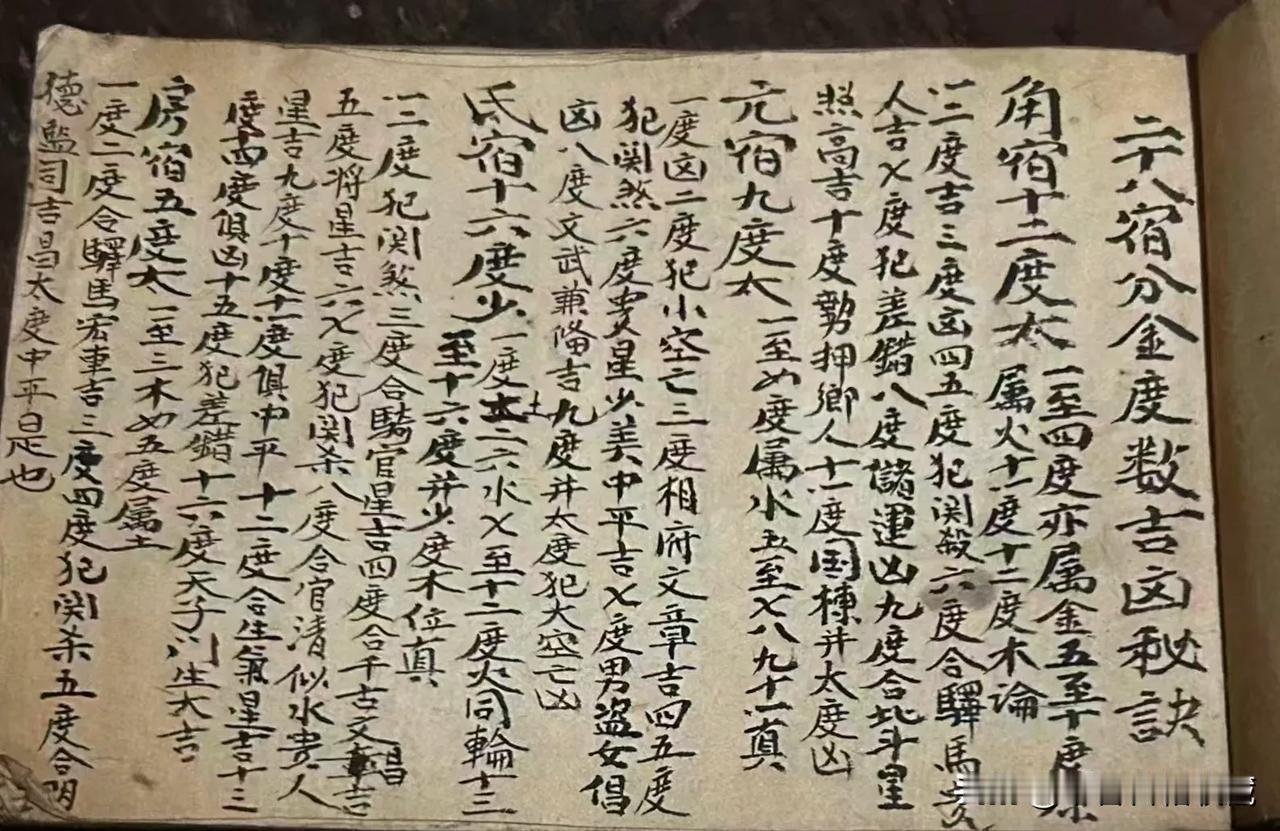 二十八宿分金度数吉凶秘訣
角宿十二度太
一至四度亦属金五至十度
属火十一度十二度木論
一二度吉三度凶四五度犯関殺六度合驛馬貴
人吉〤度犯差錯八度儲運凶九度合北斗星
照高吉十度勢押鄉人十一度国棟并太度凶
亢宿九度太
一至四度属水五至〤八九十一真
一度凶二度犯小空亡三度相府文章吉四五度
犯関煞六度贵星少美中平吉〤度男盗女倡
凶八度文武兼俻吉九度并太度犯大空亡凶
氐宿十六度少
一度土二六水〤至十二度火同輪十三
至十六度并少度木位真
一二度犯関煞三度合騎官星吉四度合千古文章吉
五度将星吉六〤度犯関杀八度合官清似水貴人
星吉九度十度十一度俱中平十二度合生氣星吉十三
度十四度俱凶十五度犯差錯十六度天子门生大吉
房宿五度太
一至三木四五度属土
一度二度合驛馬宏車吉三度四度犯関杀五度合明
德監司吉昌太度中平是也